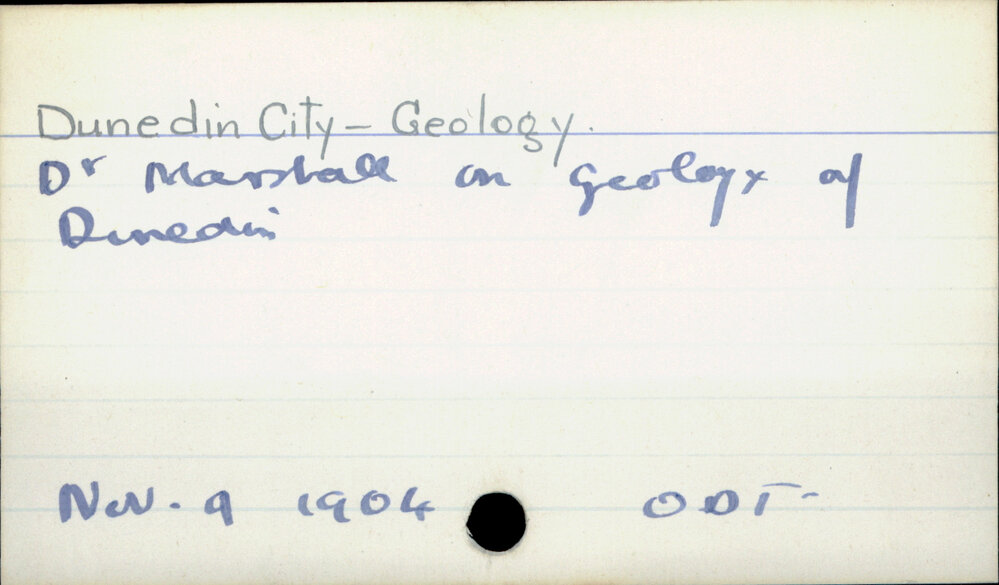 Dunedin City – Geology.
Dr Marshall on geology of
Dunedin
Nov. 9 1904 ODT.